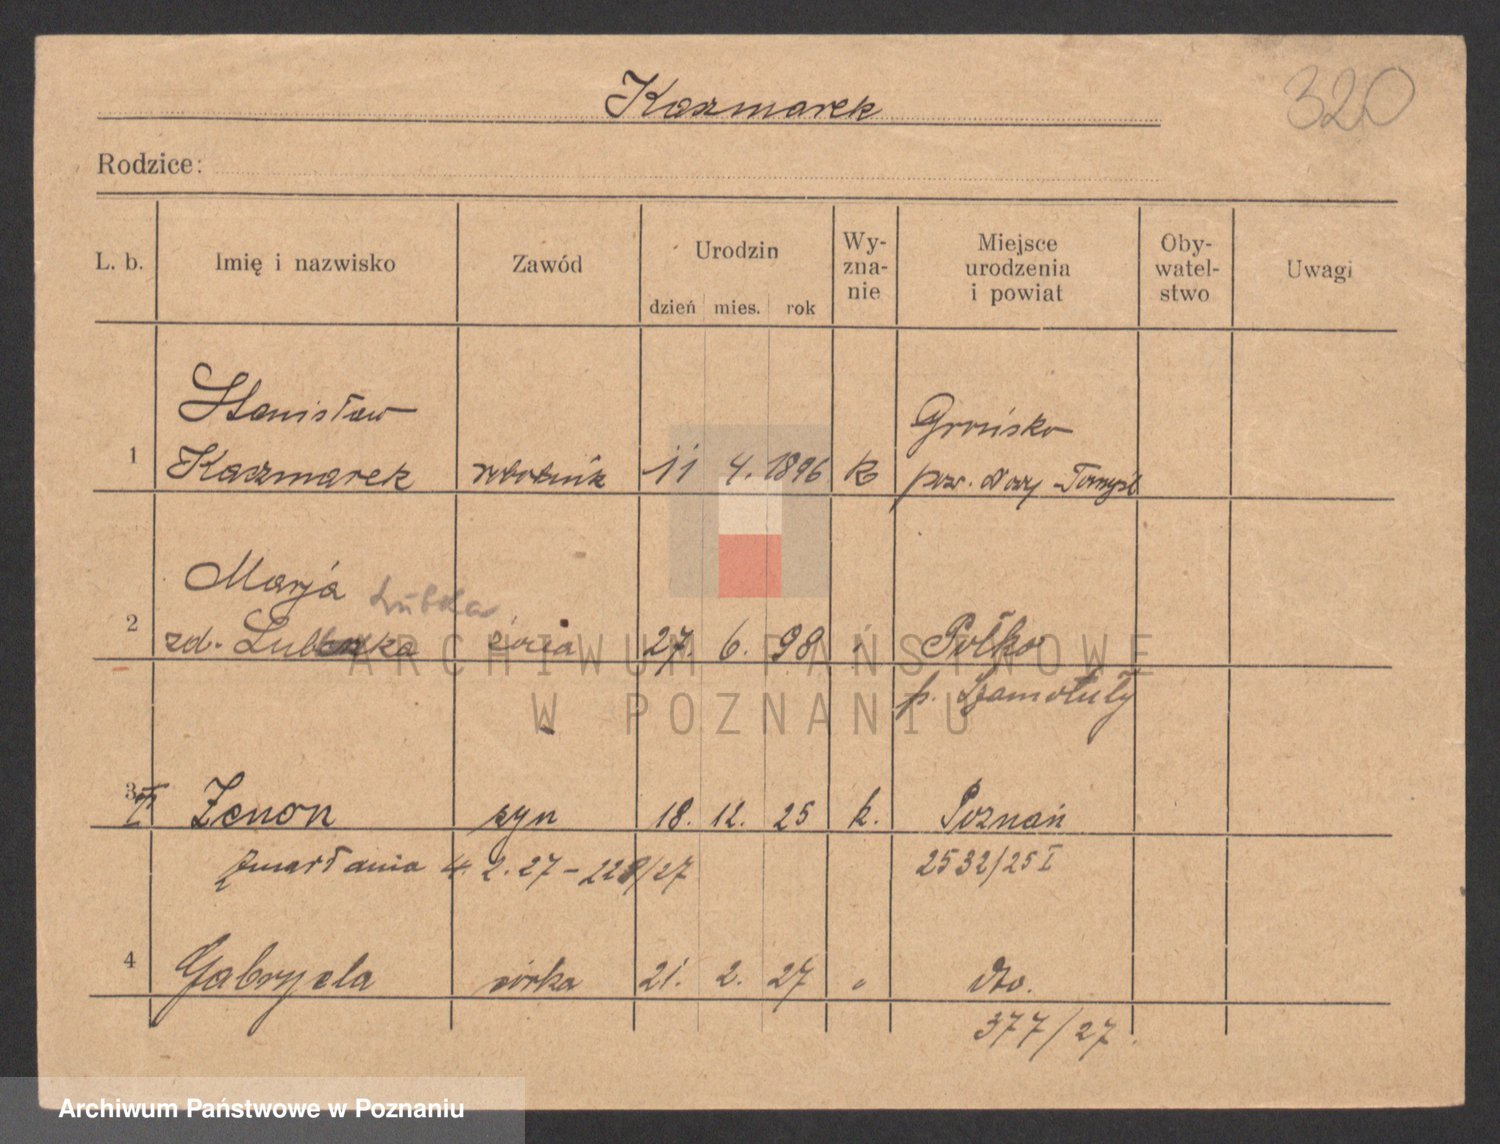 Kaczmarek
320
Rodzice:
L. b. Imię i nazwisko Zawód Urodzin Wy-zna-nie Miejsce urodzenia i powiat Oby-watel-stwo Uwagi
dzień mies. rok
Stanisław
Grońsko
1 Kaczmarek robotnik 11 4. 1896 k pow. Nowy-Tomyśl
Marja Lubska
2 zd. 27. 6. 98 "
p. Szamotuły
3 Zenon syn 18. 12. 25 k. Poznań
4. 2. 27 - 228/27 2532/25 I
4 Gabryela córka 21. 2. 27 " dto.
377/27.
ARCHIWUM PAŃSTWOWE
W POZNANIU
Archiwum Państwowe w Poznaniu